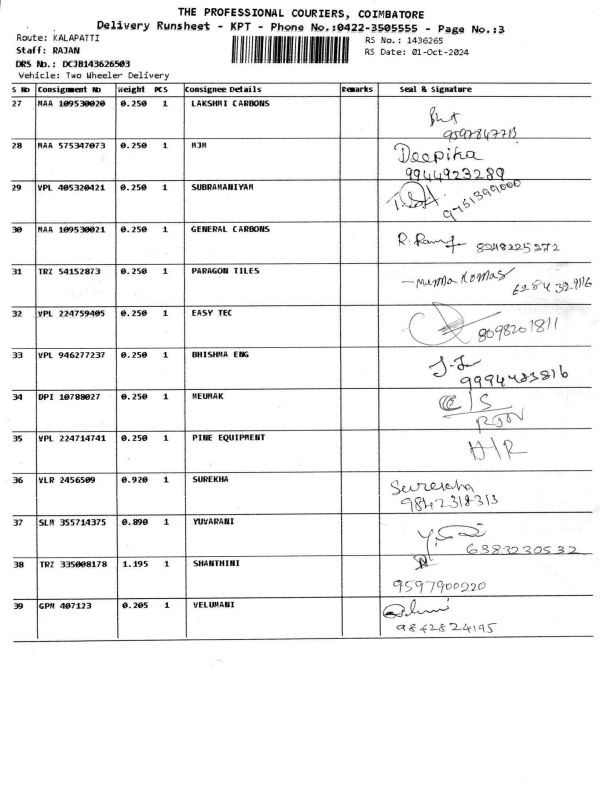 THE PROFESSIONAL COURIERS, COIMBATORE
Delivery Runsheet - KPT - Phone No.:0422-3505555 - Page No.:3
Route: KALAPATTI
RS No.: 1436265
Staff: RAJAN
RS Date: 01-Oct-2024
DRS No.: DCJB143626503
Vehicle: Two Wheeler Delivery
S No Consignment No Weight PCS Consignee Details Remarks Seal & Signature
27 MAA 109530020 0.250 1 LAKSHMI CARBONS
28 MAA 575347073 0.250 1 MJM Deepika
9944923289
29 VPL 405320421 0.250 1 SUBRAMANIYAM
30 MAA 109530021 0.250 1 GENERAL CARBONS
8248225272
31 TRZ 54152873 0.250 1 PARAGON TILES
32 VPL 224759405 0.250 1 EASY TEC
8098201811
33 VPL 946277237 0.250 1 BHISHMA ENG
9994483816
34 DPI 10788027 0.250 1 MEUMAK
35 VPL 224714741 0.250 1 PINE EQUIPMENT
H/R
36 VLR 2456509 0.920 1 SUREKHA
9842318313
37 SLM 355714375 0.890 1 YUVARANI
6383230532
38 TRZ 335008178 1.195 1 SHANTHINI
9597900220
39 GPM 407123 0.205 1 VELUMANI
9842824195